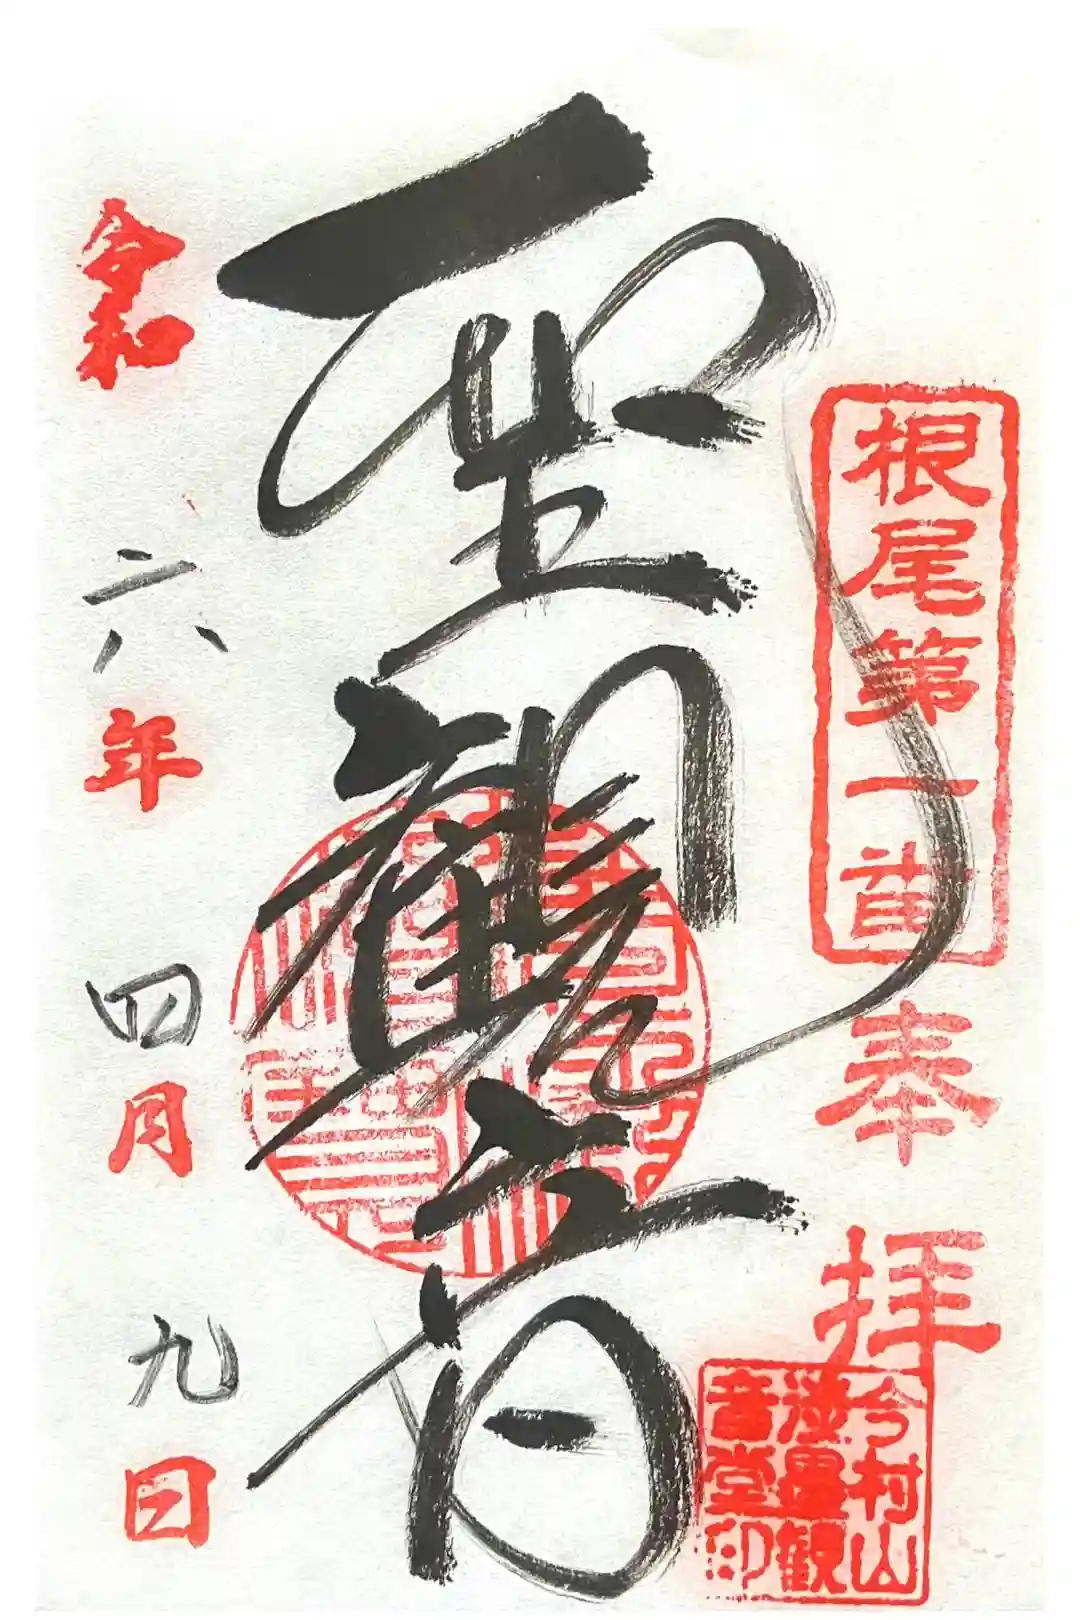 根尾第一首
奉拝
聖観音
令和六年四月九日
今村山
観
音堂印